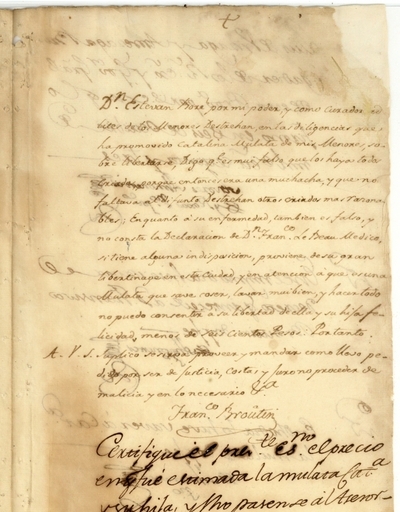 Dn. Estevan Boré por mi poder, y como Curador ad
lites de los Menores Destrehan, en las diligencias que
ha promovido Catalina Mulata de mis Menores, so
bre libertarse, Digo qe. es mui falso que los haya todos
criados, porque entonces era una muchacha, y que no
faltava al Difunto Destrehan otros criados mas razona
bles; En quanto à su enfermedad, tambien es falso, y
no consta la Declaracion de Dn. Franco. Le Beau Medico,
si tiene alguna indisposicion, proviene de su gran
libertinage en esta Ciudad, y en atencion à que es una
Mulata que save coser, lavar mui bien, y hacer todo
no puedo consentir à su libertad de ella y su hija Fe
licidad, menos de Seis Cientos Pesos: Por tanto
A. V. S. suplico se sirva proveer y mandar como llevo pe
dido por ser de Justicia, Costas y juro no proceder de
malicia y en lo necesario &a
Franco. Broutin
Certifique el preste. Esno. el precio
en qe fué estimada la mulata Cata.
y su hija, y fho pasense àl Asesor